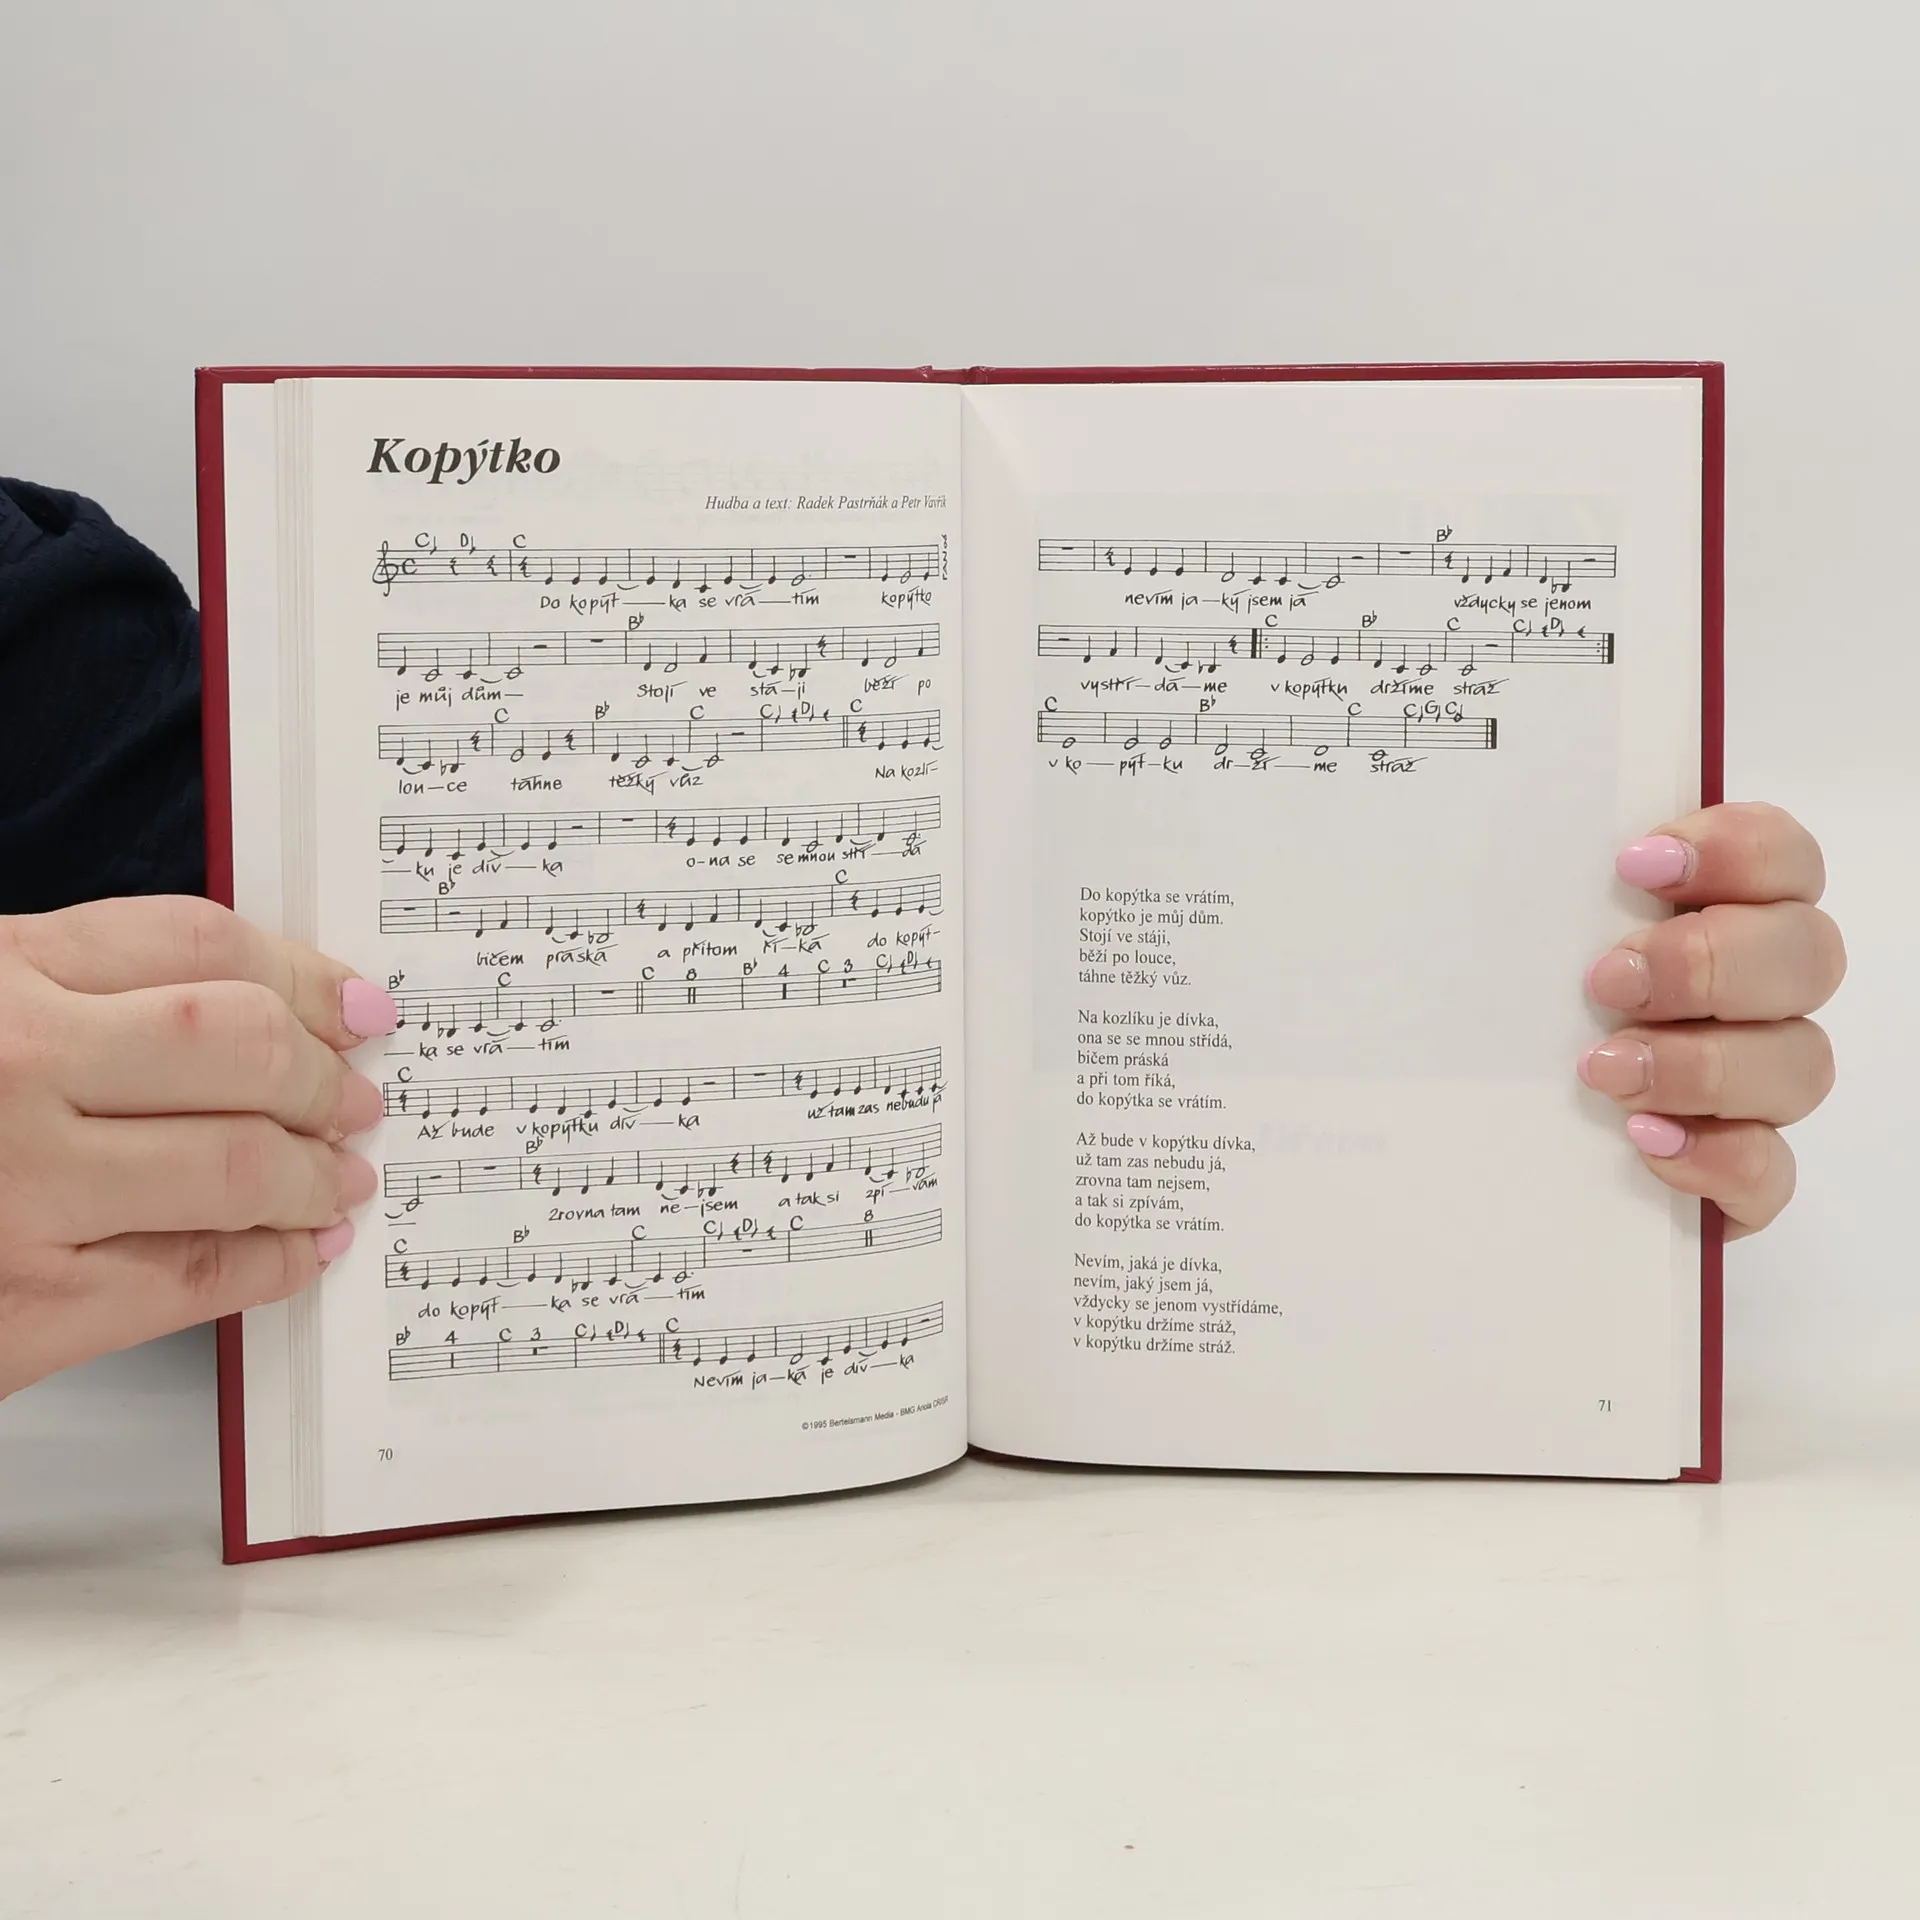 Kopýtko
Hudba a text: Radek Pastrňák a Petr Vavřík
C D C
Do kopýt—ka se vrá—tím kopýtko
B♭
je můj dům— Stojí ve stá—ji běží po
C B♭ C C D C
lou—ce táhne těžký vůz Na kozlí-
—ku je dív—ka o-na se se mnou stří—dá
B♭ C
bičem práská a přitom ří—ká do kopýt-
B♭ C C 8 B♭ 4 C 3 C D
—ka se vrá—tím
C
Až bude v kopýtku dív—ka už tam zas nebudu já
B♭
zrovna tam ne—jsem a tak si zpí—vám
C B♭ C C D C 8
do kopýt—ka se vrá—tím
B♭ 4 C 3 C D C
Nevím ja—ká je dív—ka
©1995 Bertelsmann Media - BMG Ariola ČR/SR
70
B♭
nevím ja—ký jsem já vždycky se jenom
C B♭ C C D
vystří—dá—me v kopýtku držíme stráž
C B♭ C C G C
v ko—pýt—ku dr—ží—me stráž
Do kopýtka se vrátím,
kopýtko je můj dům.
Stojí ve stáji,
běží po louce,
táhne těžký vůz.
Na kozlíku je dívka,
ona se se mnou střídá,
bičem práská
a při tom říká,
do kopýtka se vrátím.
Až bude v kopýtku dívka,
už tam zas nebudu já,
zrovna tam nejsem,
a tak si zpívám,
do kopýtka se vrátím.
Nevím, jaká je dívka,
nevím, jaký jsem já,
vždycky se jenom vystřídáme,
v kopýtku držíme stráž,
v kopýtku držíme stráž.
71